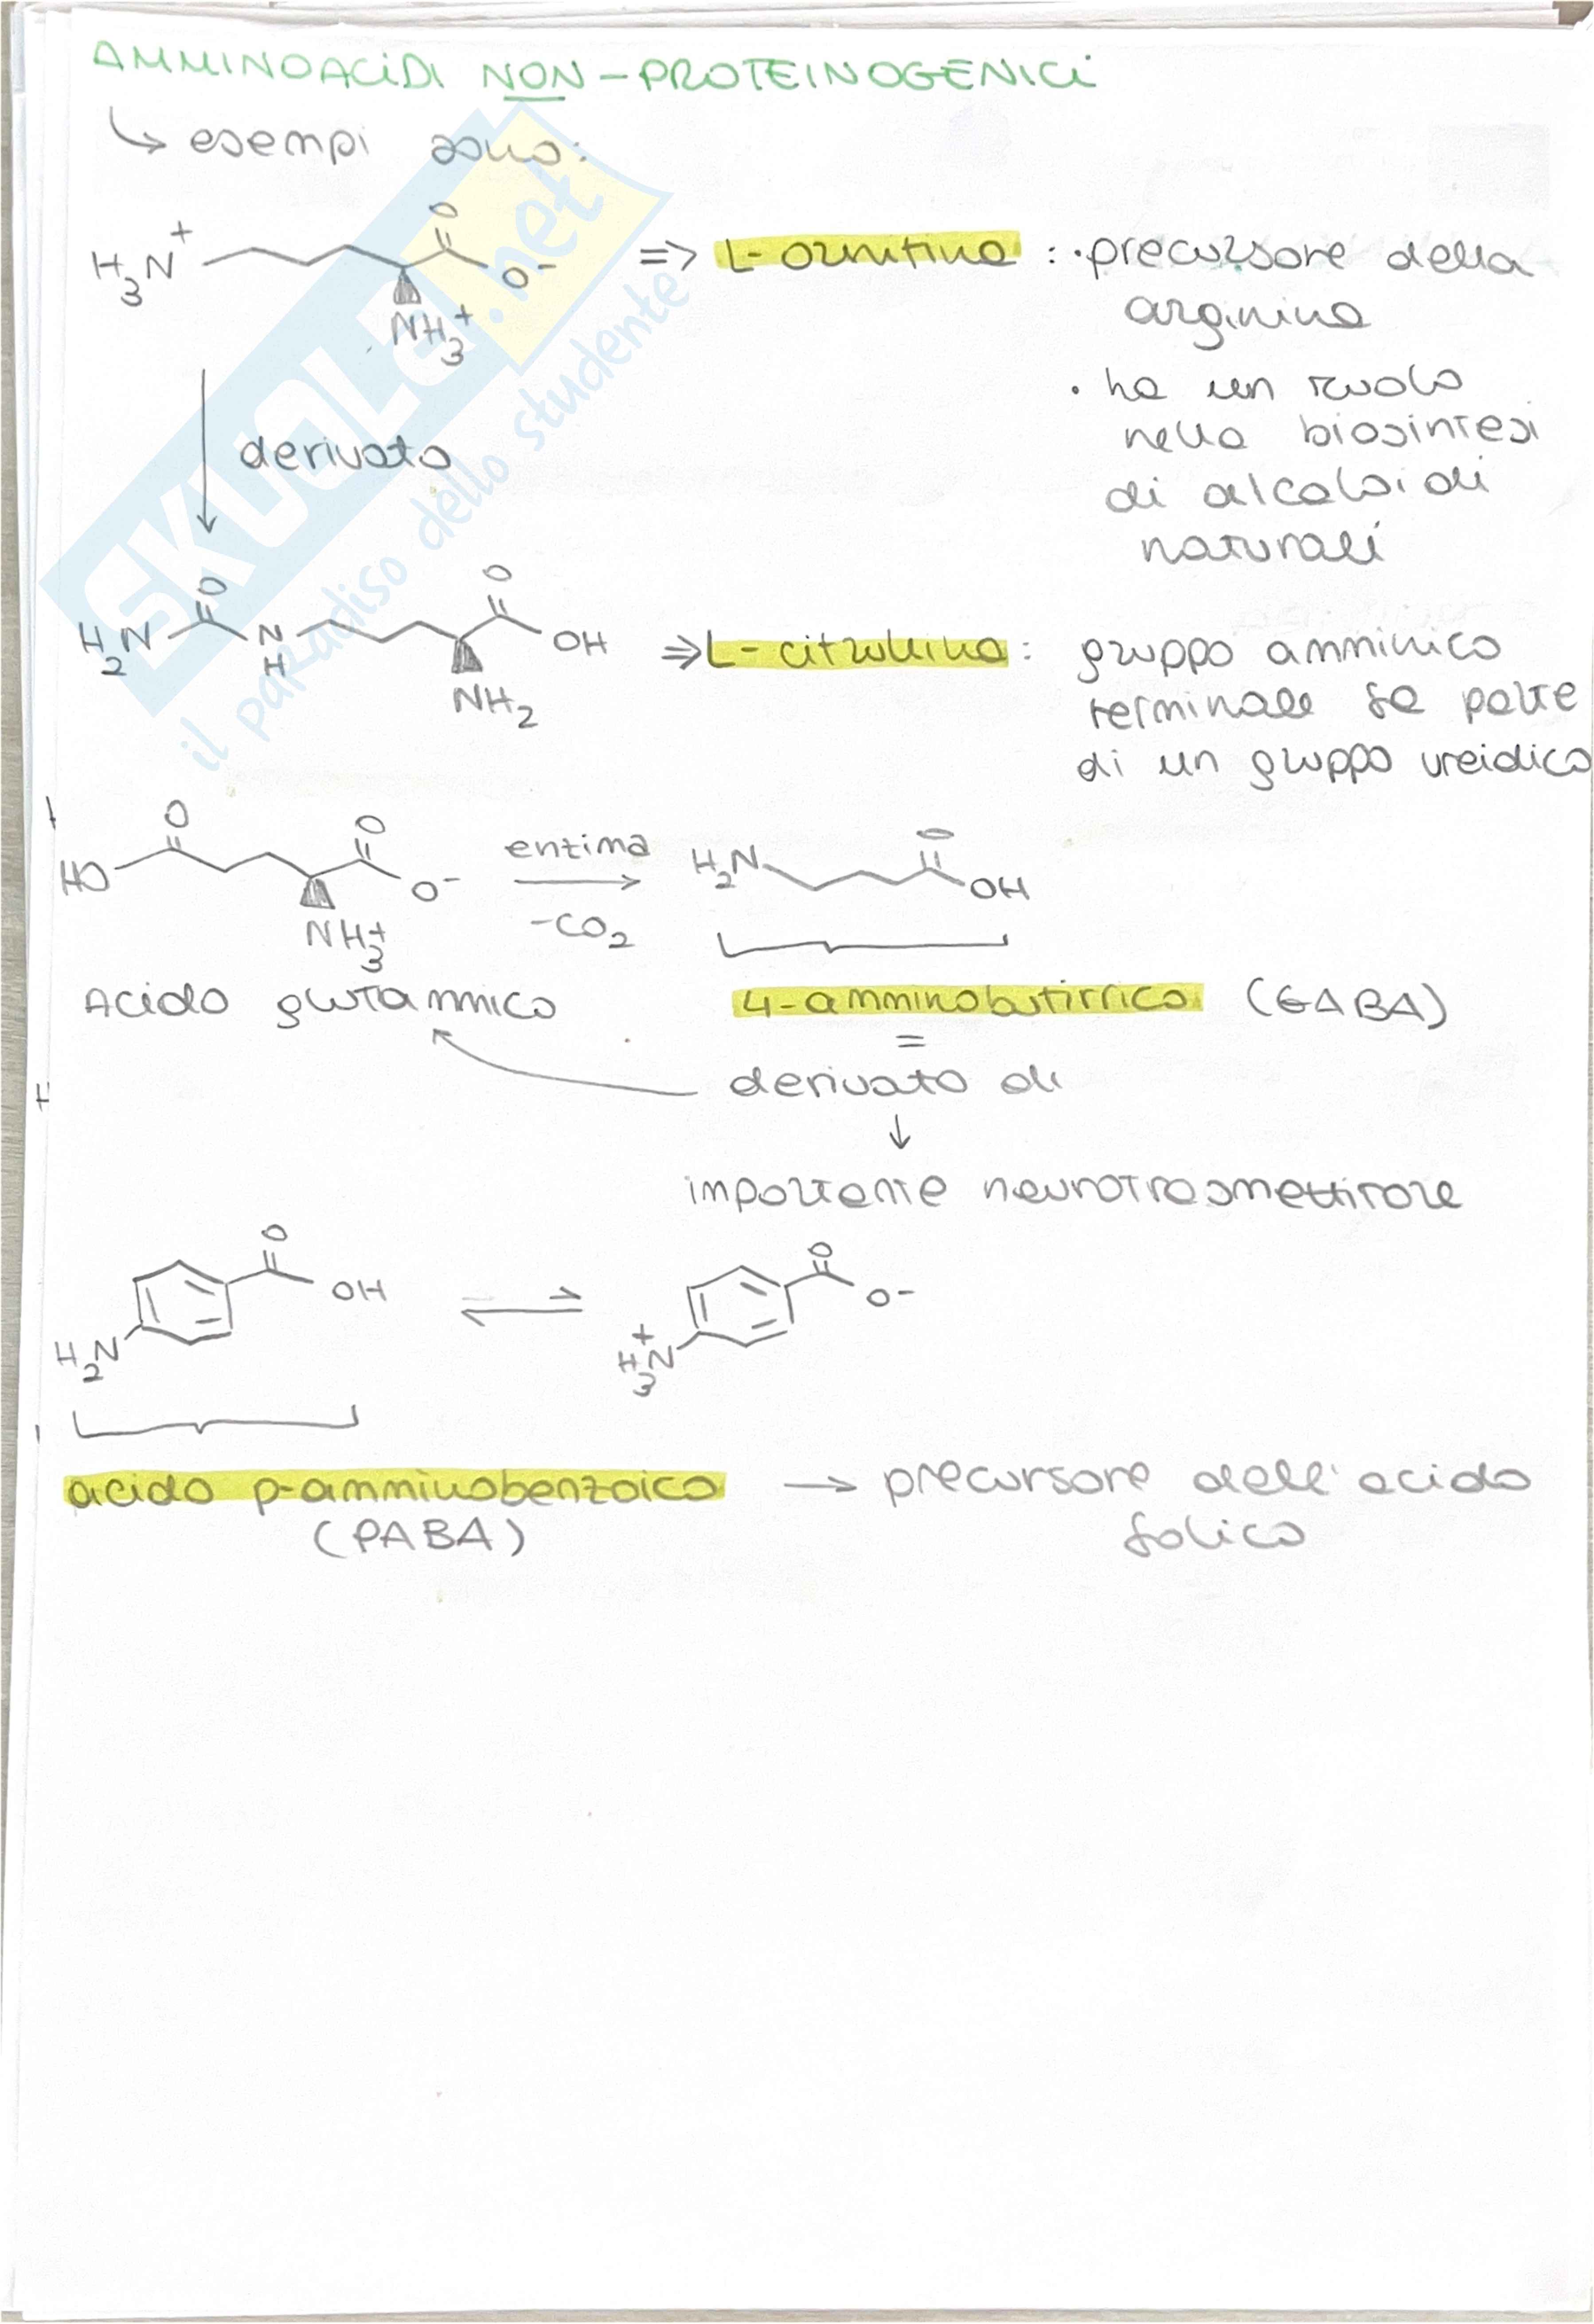 AMMINOACIDI NON-PROTEINOGENICI
↳ esempi sono:
H3N+ O O- NH3+ => L-ornitina : · precursore della
arginina
· ha un ruolo
nella biosintesi
di alcaloidi
naturali
derivato
H2N O N H O OH NH2 => L-citrullina : gruppo amminico
terminale fa parte
di un gruppo ureidico
HO O O O- NH3+ enzima -CO2 H2N O OH
Acido glutammico 4-amminobutirrico (GABA)
=
derivato di
↓
importante neurotrasmettitore
H2N O OH ⇌ H3N+ O O-
acido p-amminobenzoico → precursore dell'acido
(PABA) folico
SKUOLA.net
il paradiso dello studente